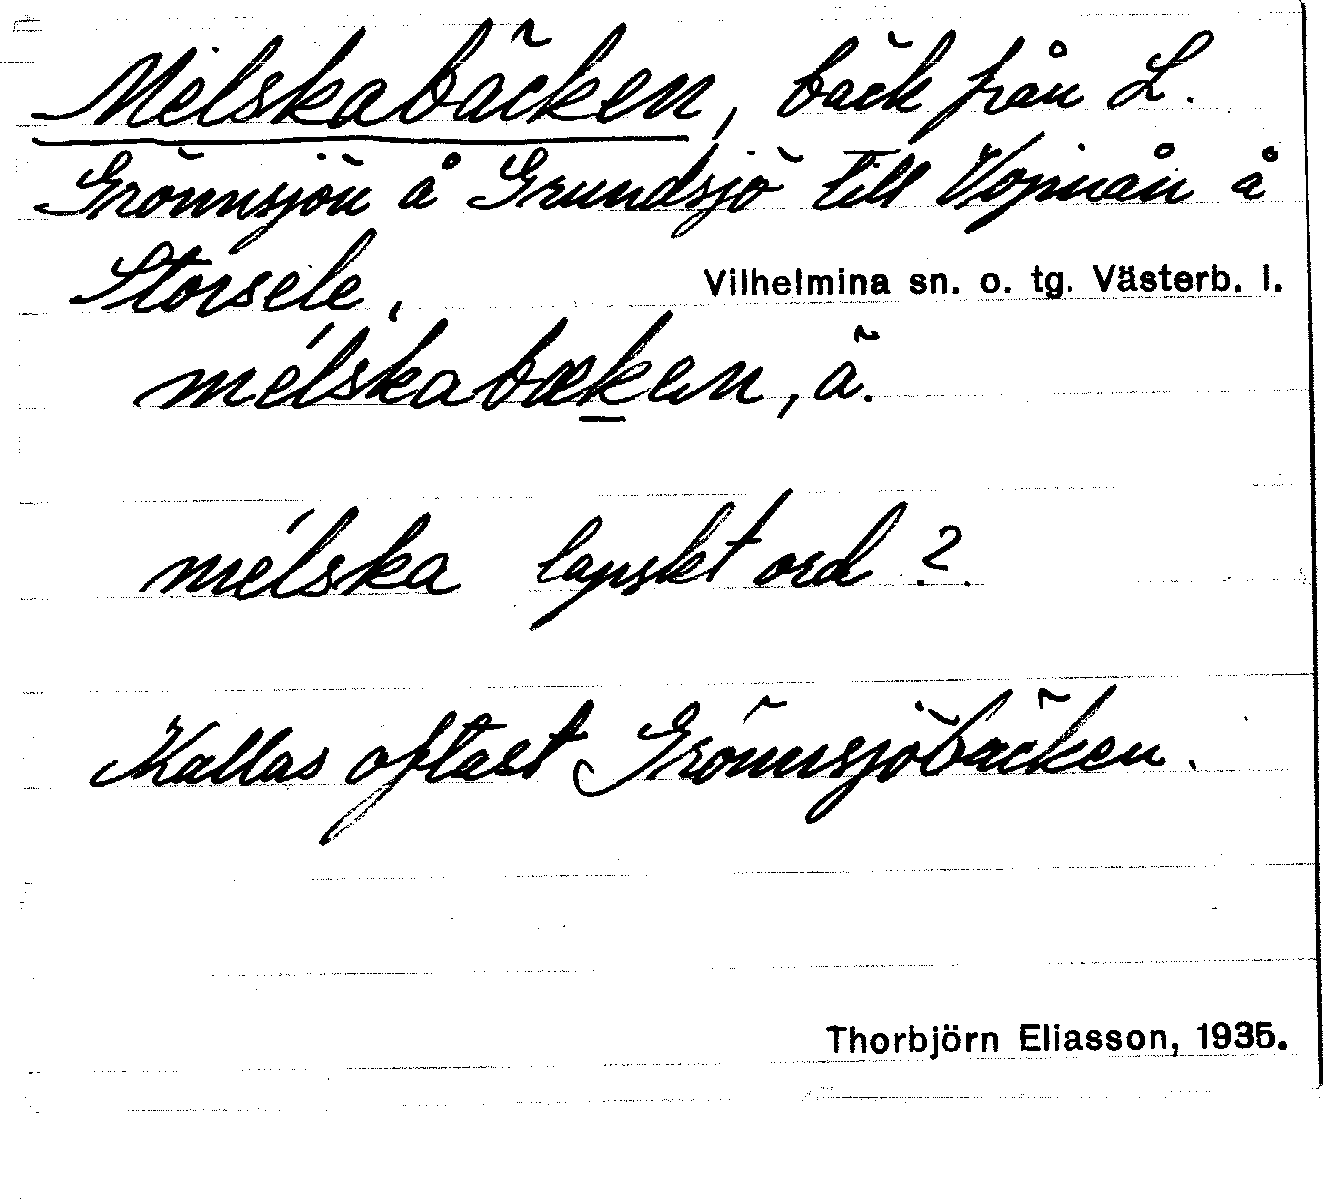 Mélskabäcken, bäck från L.
Grönnsjön å Grundsjö till Vojmån å
Storsele.
Vilhelmina sn. o. tg. Västerb. l.
mélskabækan, ã.
mélska lapskt ord ?
Kallas oftast Grönnsjöbäcken.
Thorbjörn Eliasson, 1935.